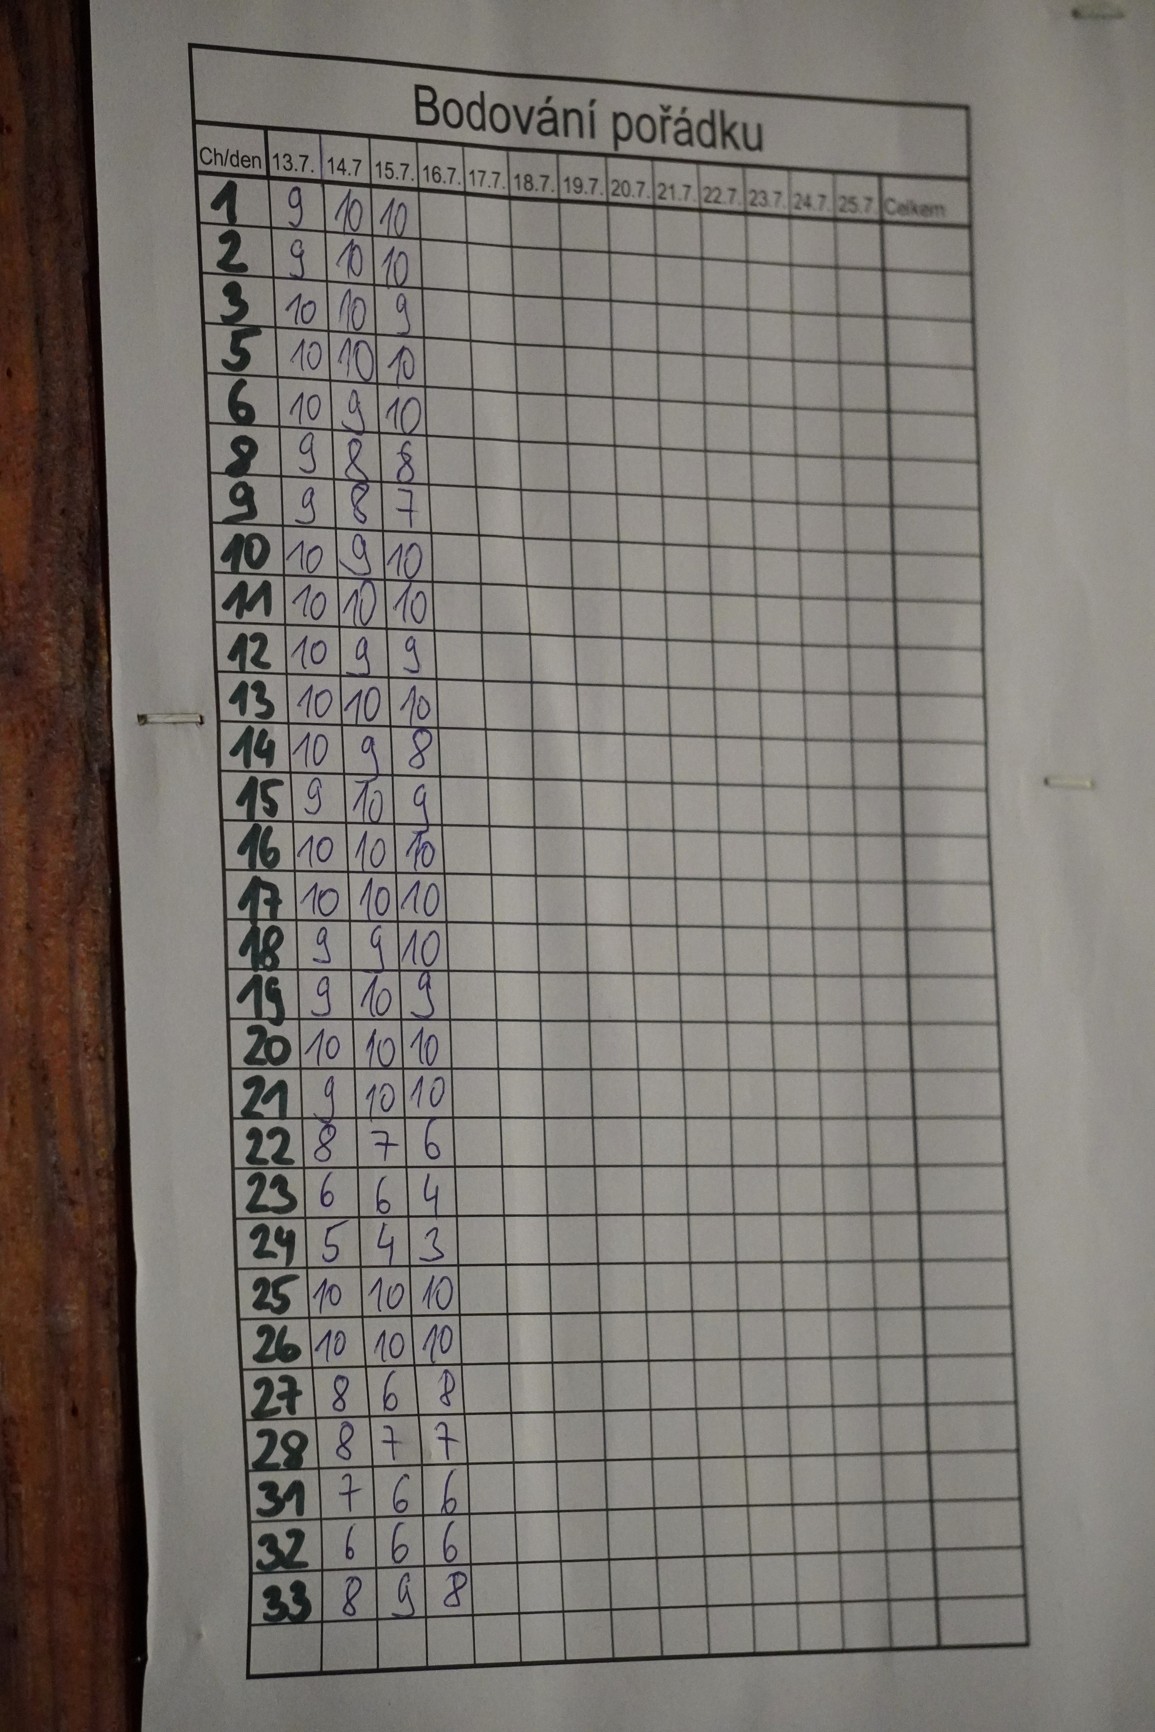 Bodování pořádku
Ch/den 13.7. 14.7 15.7. 16.7. 17.7. 18.7. 19.7. 20.7. 21.7. 22.7. 23.7. 24.7. 25.7. Celkem
1 9 10 10
2 9 10 10
3 10 10 9
5 10 10 10
6 10 9 10
8 9 8 8
9 9 8 7
10 10 9 10
11 10 10 10
12 10 9 9
13 10 10 10
14 10 9 8
15 9 10 9
16 10 10 10
17 10 10 10
18 9 9 10
19 9 10 9
20 10 10 10
21 9 10 10
22 8 7 6
23 6 6 4
24 5 4 3
25 10 10 10
26 10 10 10
27 8 6 8
28 8 7 7
31 7 6 6
32 6 6 6
33 8 9 8